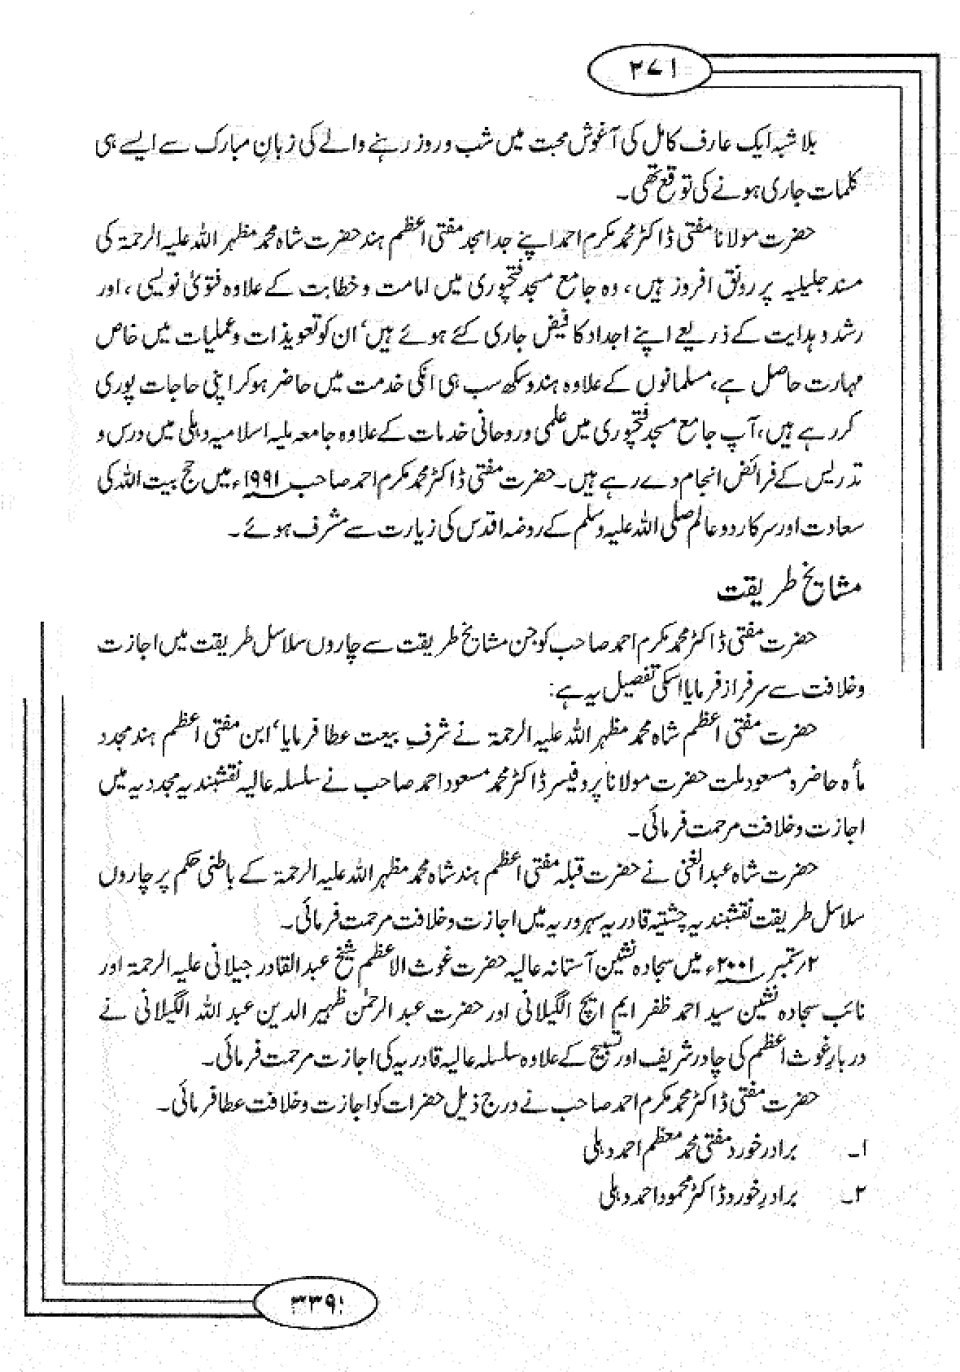 ۳۷۱
بلا شبہ ایک عارف کامل کی آغوش محبت میں شب و روز رہنے والے کی زبانِ مبارک سے ایسے ہی
کلمات جاری ہونے کی توقع تھی۔
حضرت مولانا مفتی ڈاکٹر محمد مکرم احمد اپنے جد امجد مفتی اعظم ہند حضرت شاہ محمد مظہر اللہ علیہ الرحمۃ کی
مسند جلیلیہ پر رونق افروز ہیں، وہ جامع مسجد فتحپوری میں امامت و خطابت کے علاوہ فتویٰ نویسی، اور
رشد و ہدایت کے ذریعے اپنے اجداد کا فیض جاری کئے ہوئے ہیں، ان کو تعویذات و عملیات میں خاص
مہارت حاصل ہے، مسلمانوں کے علاوہ ہندو سکھ سب ہی انکی خدمت میں حاضر ہو کر اپنی حاجات پوری
کر رہے ہیں، آپ جامع مسجد فتحپوری میں علمی و روحانی خدمات کے علاوہ جامعہ ملیہ اسلامیہ دہلی میں درس و
تدریس کے فرائض انجام دے رہے ہیں۔ حضرت مفتی ڈاکٹر محمد مکرم احمد صاحب ۱۹۹۱ء میں حج بیت اللہ کی
سعادت اور سرکار دو عالم صلی اللہ علیہ وسلم کے روضہ اقدس کی زیارت سے مشرف ہوئے۔
مشایخ طریقت
حضرت مفتی ڈاکٹر محمد مکرم احمد صاحب کو جن مشایخ طریقت سے چاروں سلاسل طریقت میں اجازت
و خلافت سے سرفراز فرمایا اسکی تفصیل یہ ہے:
حضرت مفتی اعظم شاہ محمد مظہر اللہ علیہ الرحمۃ نے شرفِ بیعت عطا فرمایا، ابن مفتی اعظم ہند مجدد
مأہ حاضرہ مسعود ملت حضرت مولانا پروفیسر ڈاکٹر محمد مسعود احمد صاحب نے سلسلہ عالیہ نقشبندیہ مجددیہ میں
اجازت و خلافت مرحمت فرمائی۔
حضرت شاہ عبدالغنی نے حضرت قبلہ مفتی اعظم ہند شاہ محمد مظہر اللہ علیہ الرحمۃ کے باطنی حکم پر چاروں
سلاسل طریقت نقشبندیہ چشتیہ قادریہ سہروریہ میں اجازت و خلافت مرحمت فرمائی۔
۲/ستمبر ۲۰۰۱ء میں سجادہ نشین آستانہ عالیہ حضرت غوث الاعظم شیخ عبدالقادر جیلانی علیہ الرحمۃ اور
نائب سجادہ نشین سید احمد ظفر ایم ایچ الگیلانی اور حضرت عبد الرحمٰن ظہیر الدین عبد اللہ الگیلانی نے
دربارِ غوث اعظم کی چادر شریف اور تسبیح کے علاوہ سلسلہ عالیہ قادریہ کی اجازت مرحمت فرمائی۔
حضرت مفتی ڈاکٹر محمد مکرم احمد صاحب نے درج ذیل حضرات کو اجازت و خلافت عطا فرمائی۔
۱۔ برادر خورد مفتی محمد معظم احمد دہلی
۲۔ برادرِ خورد ڈاکٹر محمود احمد دہلی
۳۳۹۱